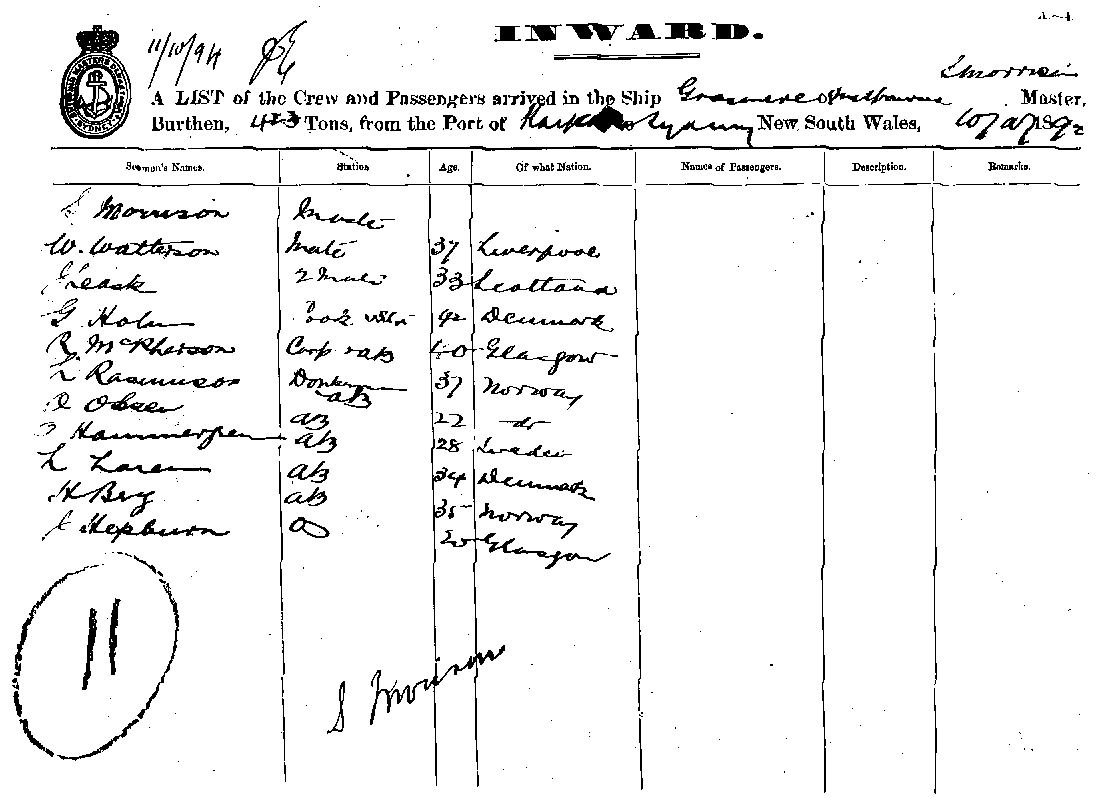 INWARD.
11/10/94
S Morrison
A LIST of the Crew and Passengers arrived in the Ship Grasmere of Master,
Burthen, 423 Tons, from the Port of to Sydney New South Wales, 10/10/1892
Seamen's Names. Station Age. Of what Nation. Names of Passengers. Description. Remarks.
S Morrison
W. Watterson Mate 37 Liverpool
Leask 2 Mate 33 Scotland
G Holm Cook 42 Denmark
R. McPherson Carp & AB 40 Glasgow
L Rasmuson Donkeyman AB 37 Norway
O Olsen AB 22 do
AB 28 Sweden
L Larsen AB 34 Denmark
H Berg AB 35 Norway
J Hepburn OS 20 Glasgow
11
S Morrison